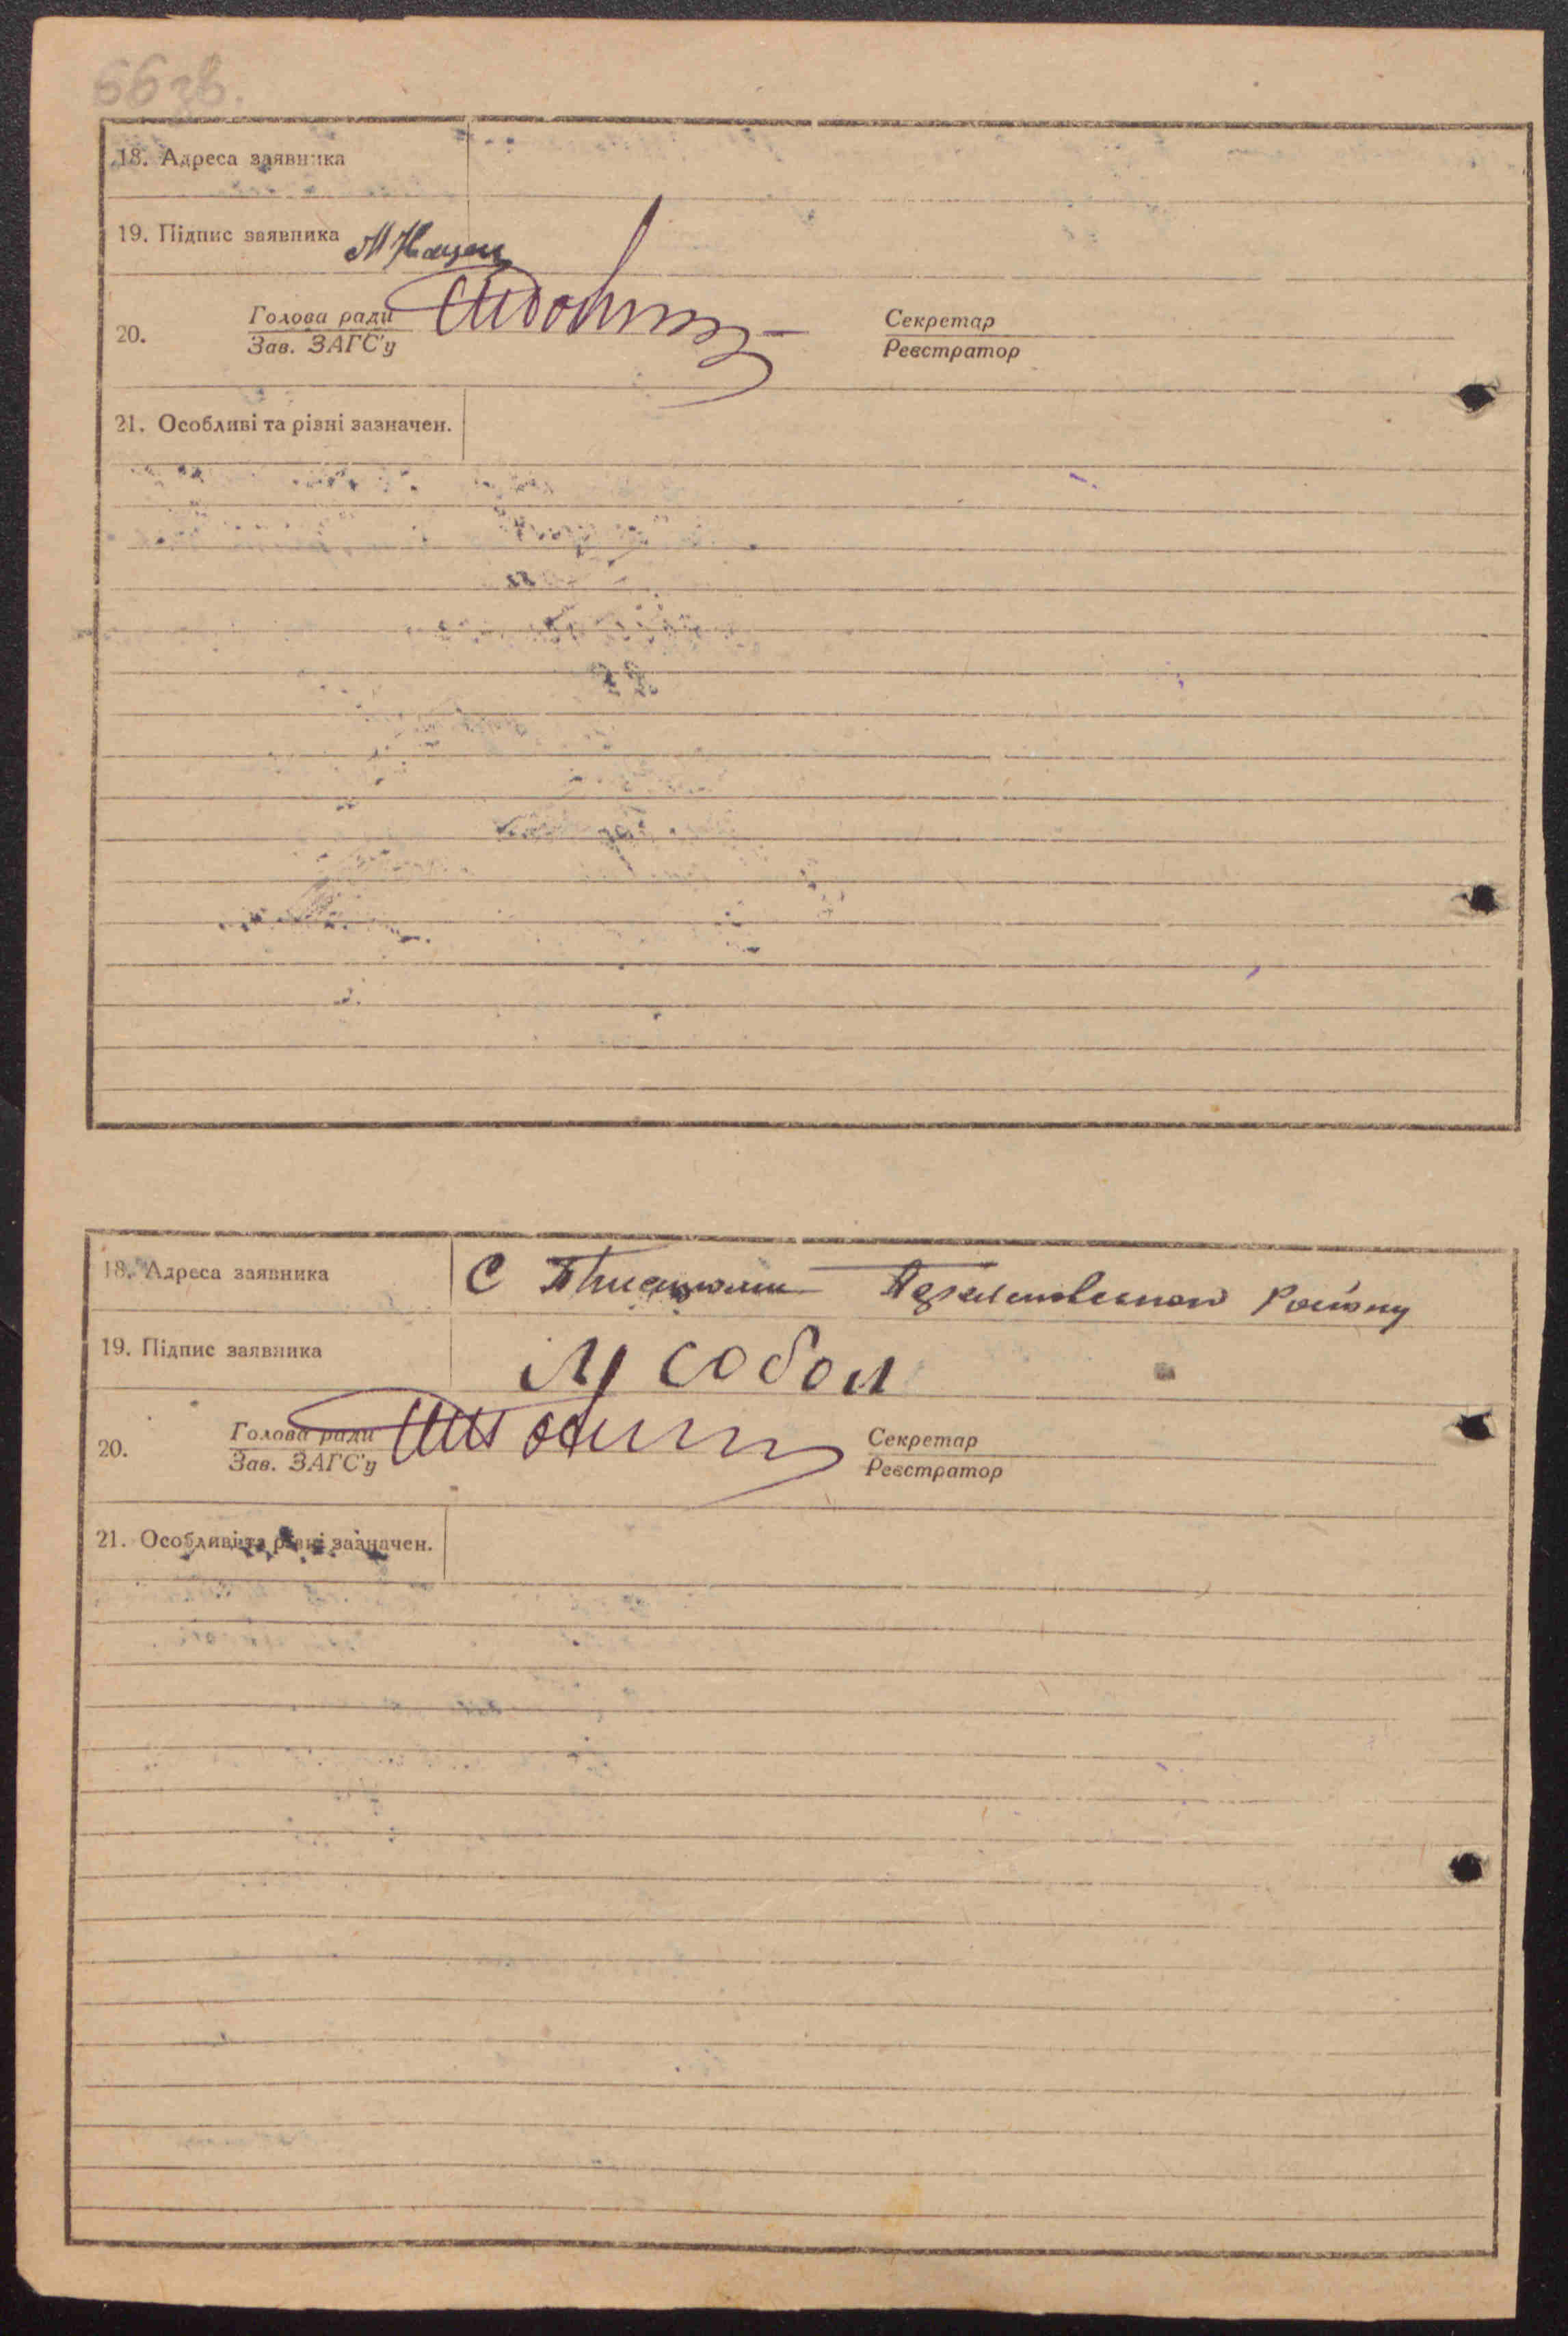 66 зв.
18. Адреса заявника
19. Підпис заявника М
20. Голова ради
Зав. ЗАГС'у
Секретар
Реєстратор
21. Особливі та різні зазначен.
18. Адреса заявника С Району
19. Підпис заявника М Собол
20. Голова ради
Зав. ЗАГС'у
Секретар
Реєстратор
21. Особливі та різні зазначен.